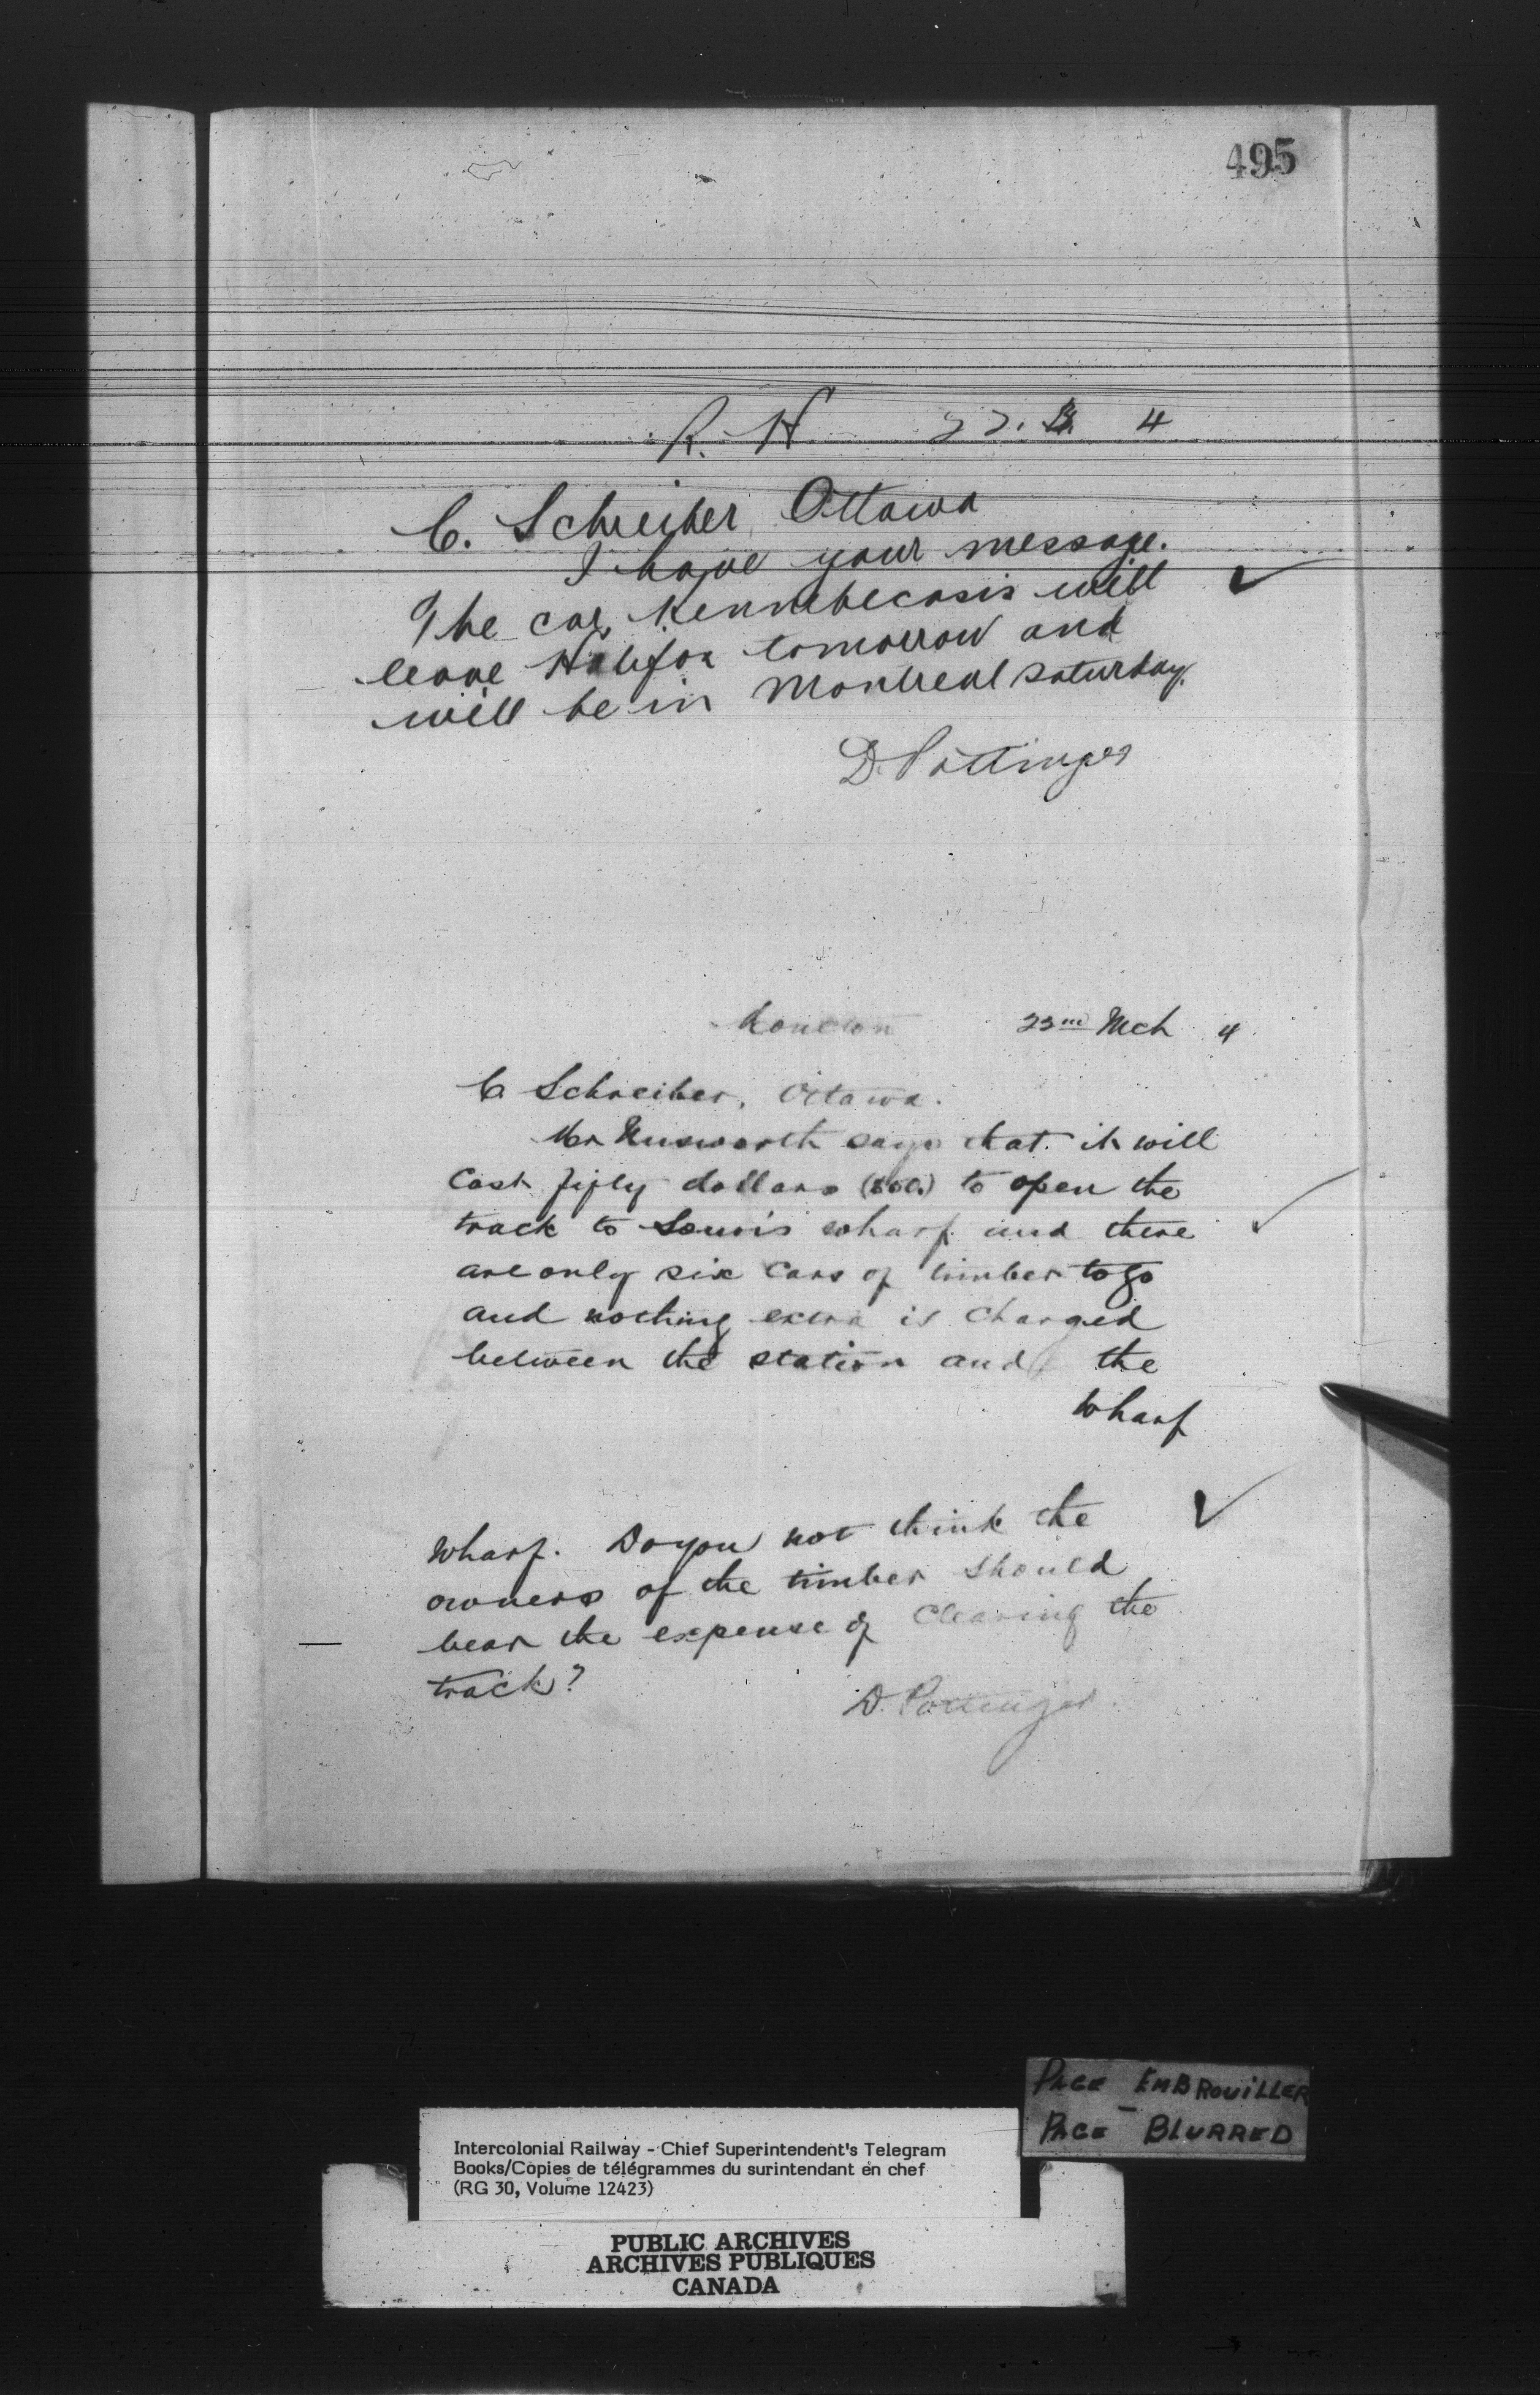 495
R. H. 22. 3. 4
C. Schreiber, Ottawa
I have your message.
The car Kennebecasis will
leave Halifax tomorrow and
will be in Montreal Saturday.
D. Pottinger
Moncton 23rd Mch 4
C Schreiber, Ottawa.
Mr Unsworth says that it will
cost fifty dollars to open the
track to Souris wharf and there
are only six cars of timber to go
and nothing extra is charged
between the station and the
wharf
Wharf. Do you not think the
owners of the timber should
bear the expense of clearing the
track?
D. Pottinger.
PAGE EMBROUILLER
PAGE BLURRED
Intercolonial Railway - Chief Superintendent's Telegram
Books/Copies de télégrammes du surintendant en chef
(RG 30, Volume 12423)
PUBLIC ARCHIVES
ARCHIVES PUBLIQUES
CANADA